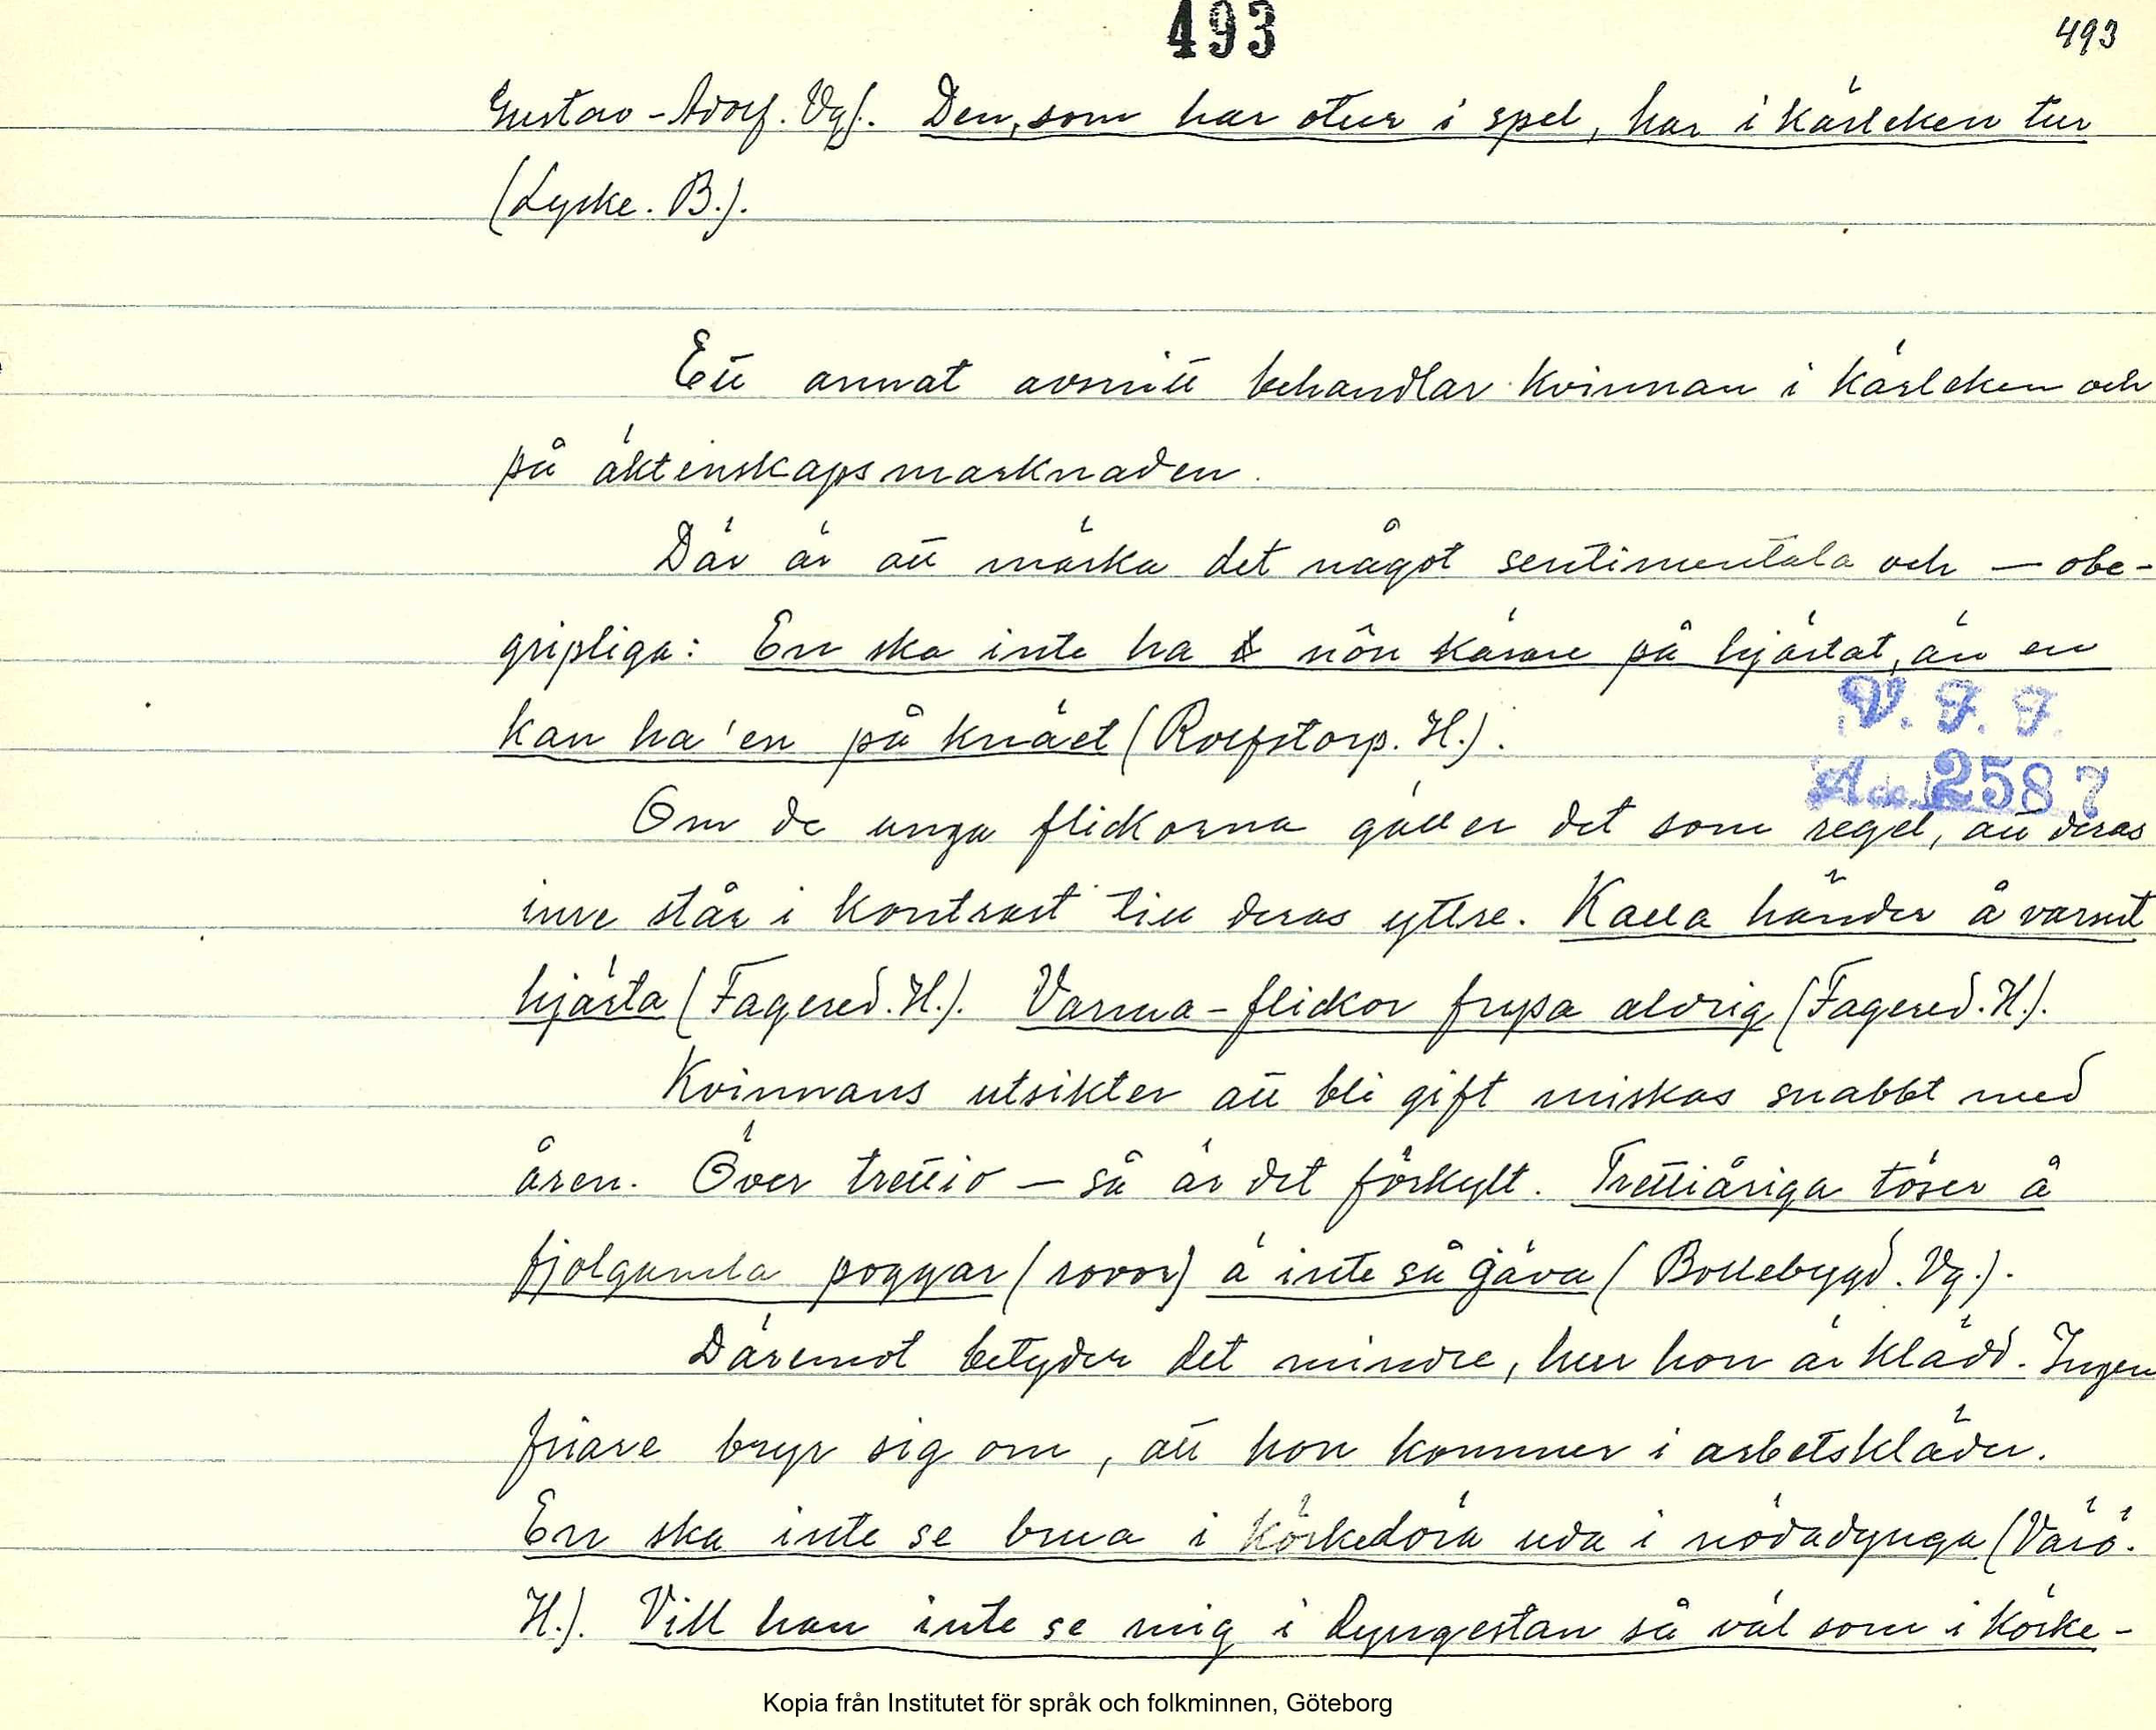 493
493
Gustav-Adolf. Vg). Den, som har otur i spel, har i kärleken tur
(Lyske. B.).
Ett annat avsnitt behandlar kvinnan i kärleken och
på äktenskapsmarknaden.
Där är att märka det något sentimentala och — obe-
gripliga: En ska inte ha nôn kärare på hjärtat, än en
kan ha 'en på knäet (Rolfstorp. H.).
V. F. F.
Acc. 2587
Om de unga flickorna gäller det som regel, att deras
inre står i kontrast till deras yttre. Kalla händer å varmt
hjärta (Fagered. H.). Varma-flickor frysa aldrig (Fagered. H.).
Kvinnans utsikter att bli gift miskas snabbt med
åren. Över trettio — så är det förkylt. Trettiåriga töser å
fjolgamla poggar (rovor) ä inte så gäva (Bollebygd. Vg.).
Däremot betyder det mindre, hur hon är klädd. Ingen
friare bryr sig om, att hon kommer i arbetskläder.
En ska inte se brua i körkedöra uda i nödadynga (Värö.
H.). Vill han inte se mig i dyngestan så väl som i körke-
Kopia från Institutet för språk och folkminnen, Göteborg